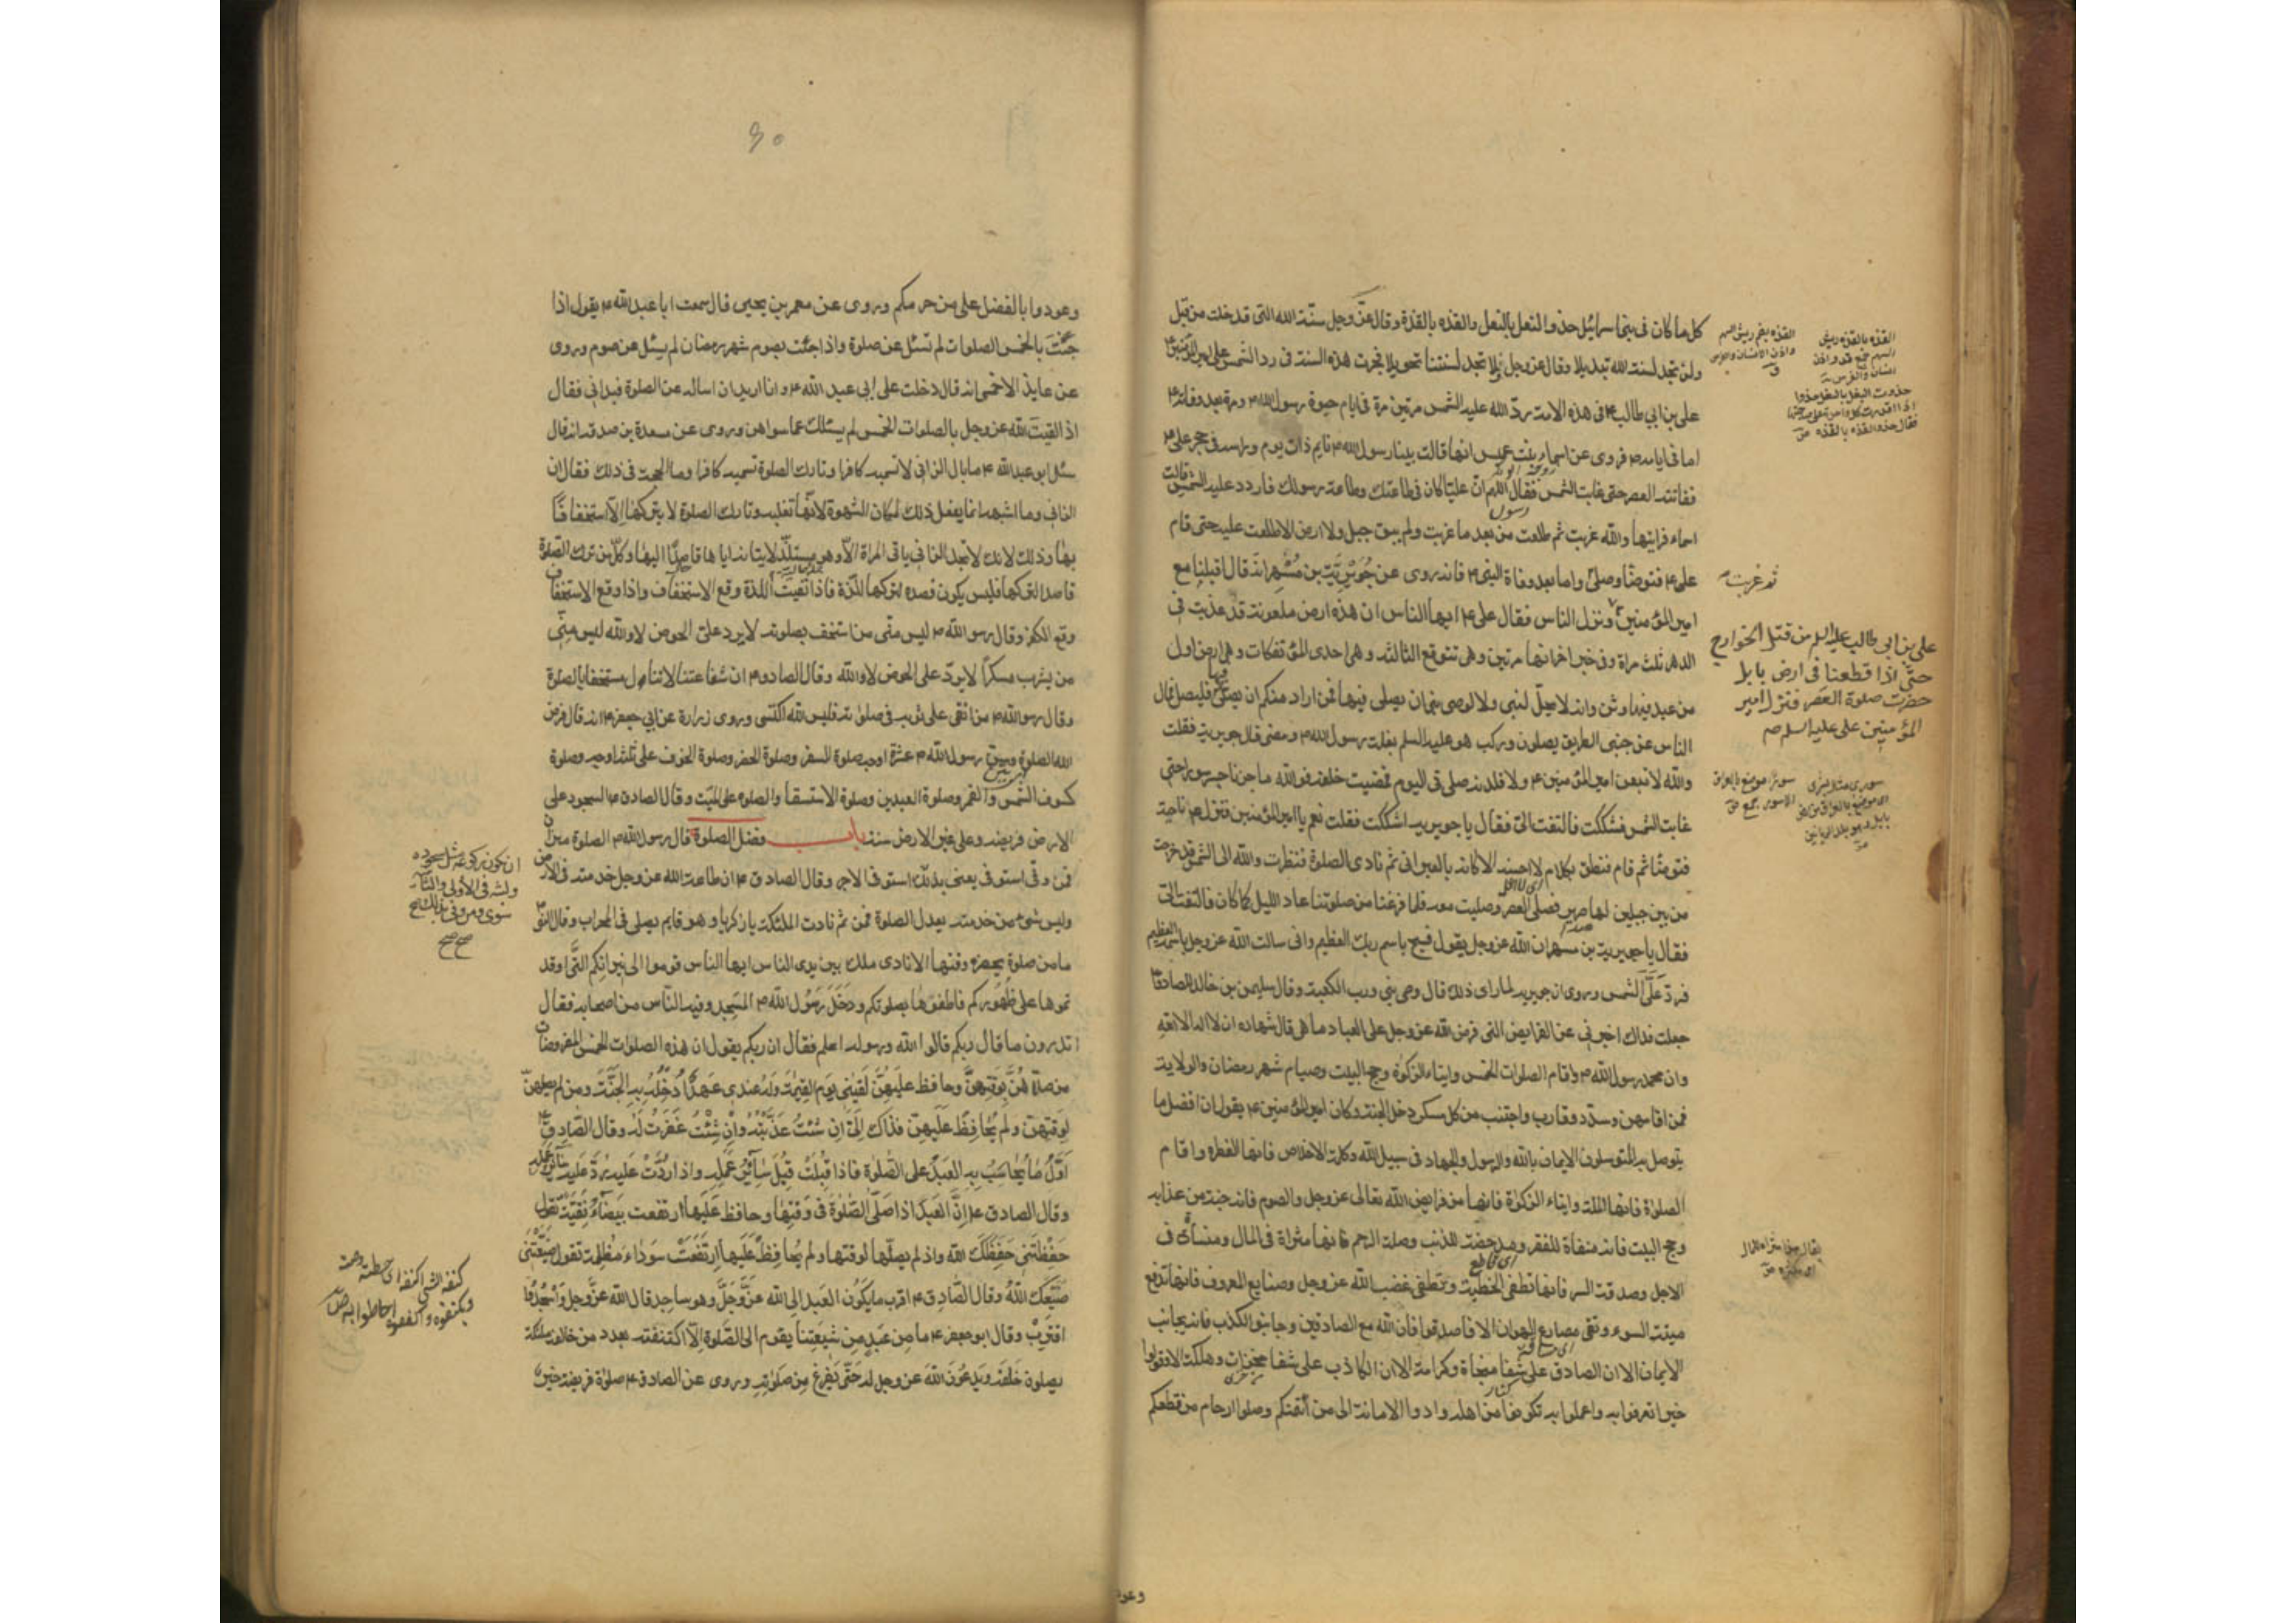 كل ما كان فى بنى اسرائيل حذو النعل بالنعل والقذه بالقذة وقال عز وجل سنة الله التى قد خلت من قبل
ولن تجد لسنة الله تبديلا وقال عز وجل ولا تجد لسنتنا تحويلا فجرت هذه السنة فى رد الشمس على امير المؤمنين
على بن ابي طالب ع فى هذه الامة رد الله عليه الشمس مرتين مرة فى ايام حيوة رسول الله ص ومرة بعد وفاته ص
اما فى ايامه ص فروى عن اسماء بنت عميس انها قالت بينا رسول الله ص نايم ذات يوم وراسه فى حجر على ع
ففاتته العصر حتى غابت الشمس فقال اللهم ان عليا كان فى طاعتك وطاعة رسولك فاردد عليه الشمس قالت
اسماء فرايتها والله غربت ثم طلعت من بعد ما غربت ولم يبق جبل ولا ارض الا طلعت عليه حتى قام
على ع فتوضا وصلى واما بعد وفاة النبى ص فانه روى عن جويرية بن مسهر انه قال اقبلنا مع
امير المؤمنين ع ونزل الناس فقال على ع ايها الناس ان هذه ارض ملعونة قد عذبت فى
الدهر ثلث مرات وفى خبر اخر انها مرتين وهى تتوقع الثالثة وهى احدى المؤتفكات وهى اول ارض
من عبد فيها وثن وانه لا يحل لنبى ولا لوصى نبى ان يصلى فيها فمن اراد منكم ان يصلى فليصل فمال
الناس عن جنبى الطريق يصلون وركب هو عليه السلم بغلة رسول الله ص ومضى قال جويرية فقلت
والله لاتبعن امير المؤمنين ع ولاقلدنه صلوتى اليوم فمضيت خلفه فوالله ما جزنا جسر سورا حتى
غابت الشمس فشككت فالتفت الىّ فقال يا جويرية اشككت فقلت نعم يا امير المؤمنين فنزل ع ناحية
فتوضا ثم قام فنطق بكلام لا احسبه الا كانه بالعبرانى ثم نادى الصلوة فنظرت والله الى الشمس قد خرجت
من بين جبلين لها صرير فصلى العصر وصليت معه فلما فرغنا من صلوتنا عاد الليل كما كان فالتفت الىّ
فقال يا جويرية بن مسهر ان الله عز وجل يقول فسبح باسم ربك العظيم وانى سالت الله عز وجل باسمه العظيم
فرد علىّ الشمس وروى ان جويرية لما راى ذلك قال وصى نبى ورب الكعبة وقال سليمن بن خالد للصادق ع
جعلت فداك اخبرنى عن الفرايض التى فرض الله عز وجل على العباد ما هى قال شهادة ان لا اله الا الله
وان محمد رسول الله ص واقام الصلوات الخمس وايتاء الزكوة وحج البيت وصيام شهر رمضان والولاية
فمن اقامهن وسدد وقارب واجتنب من كل مسكر دخل الجنة وكان امير المؤمنين ع يقول ان افضل ما
يتوصل به المتوسلون الايمان بالله والرسول والجهاد فى سبيل الله وكلمة الاخلاص فانها الفطرة واقام
الصلوة فانها الملة وايتاء الزكوة فانها من فرايض الله تعالى عز وجل والصوم فانه جنة من عذابه
وحج البيت فانه منفاة للفقر ومدحضة للذنب وصلة الرحم فانها مثراة فى المال ومنسأة فى
الاجل وصدقة السر فانها تطفى الخطيئة وتطفى غضب الله عز وجل وصنايع المعروف فانها تدفع
ميتة السوء وتقى مصارع الهوان الا فاصدقوا فان الله مع الصادقين وجانبوا الكذب فانه يجانب
الايمان الا ان الصادق على شفا منجاة وكرامة الا ان الكاذب على شفا مخزات وهلكة الا وقولوا
خيرا تعرفوا به واعملوا به تكونوا من اهله وادوا الامانة الى من ائتمنكم وصلوا ارحام من قطعكم
ثم غربت
على بن ابى طالب عليه السلم من قتل الخوارج
حتى اذا قطعنا فى ارض بابل
حضرت صلوة العصر فنزل امير
المؤمنين على عليه السلم
وعود
٩٠
وعودوا بالفضل على من حرمكم وروى عن معمر بن يحيى قال سمعت ابا عبد الله ع يقول اذا
جئت بالخمس الصلوات لم تسئل عن صلوة واذا جئت بصوم شهر رمضان لم يسئل عن صوم وروى
عن عايذ الاحمسى انه قال دخلت على ابى عبد الله ع وانا اريد ان اساله عن الصلوة فبدانى فقال
اذا لقيت الله عز وجل بالصلوات الخمس لم يسئلك عما سواهن وروى عن مسعدة بن صدقة انه قال
سئل ابو عبد الله ع ما بال الزانى لا تسميه كافرا وتارك الصلوة تسميه كافرا وما الحجة فى ذلك فقال ان
الزانى وما اشبهه انما يفعل ذلك لمكان الشهوة لانها تغلبه وتارك الصلوة لا يتركها الا استخفافا
بها وذلك لانك لا تجد الزانى ياتى المراة الا وهو مستلذ لايتانه اياها قاصدا اليها وكل من ترك الصلوة
قاصدا لتركها فليس يكون قصده لتركها اللذة فاذا نفيت اللذة وقع الاستخفاف واذا وقع الاستخفاف
وقع الكفر وقال رسو الله ص ليس منى من استخف بصلوته لا يرد علىّ الحوض لا والله ليس منى
من يشرب مسكرا لا يرد على الحوض لا والله وقال الصادق ع ان شفاعتنا لا تنال مستخفا بالصلوة
وقال رسو الله ص من اتقى على ثوبه فى صلوته فليس لله اكتسى وروى زرارة عن ابى جعفر ع انه قال فرض
الله الصلوة وسن رسول الله ص عشرة اوجه صلوة السفر وصلوة الحضر وصلوة الخوف على ثلثة اوجه وصلوة
كسوف الشمس والقمر وصلوة العيدين وصلوة الاستسقا والصلوة على الميت وقال الصادق ع السجود على
الارض فريضة وعلى غير الارض سنة باب فضل الصلوة قال رسول الله ص الصلوة ميزان
فمن وفى استوفى يعنى بذلك استوفى الاجر وقال الصادق ع ان طاعة الله عز وجل خدمته فى الارض
وليس شئ من خدمته يعدل الصلوة فمن ثم نادت الملئكة يا زكريا وهو قايم يصلى فى المحراب وقال النبى ص
ما من صلوة يحضر وقتها الا نادى ملك بين يدى الناس ايها الناس قوموا الى نيرانكم التى اوقد
تموها على ظهوركم فاطفوها بصلوتكم ودخل رسول الله ص المسجد وفيه الناس من اصحابه فقال
اتدرون ما قال ربكم قالوا الله ورسوله اعلم فقال ان ربكم يقول ان هذه الصلوات الخمس المفروضات
من صلاهن لوقتهن وحافظ عليهن لقينى يوم القيمة وله عندى عهد ادخله به الجنة ومن لم يصلهن
لوقتهن ولم يحافظ عليهن فذاك الىّ ان شئت عذبته وان شئت غفرت له وقال الصادق ع
اول ما يحاسب به العبد على الصلوة فاذا قبلت قبل سائر عمله واذا ردت عليه رد عليه سائر عمله
وقال الصادق ع ان العبد اذا صلى الصلوة فى وقتها وحافظ عليها ارتفعت بيضاء نقية تقول
حفظتنى حفظك الله واذ لم يصلها لوقتها ولم يحافظ عليها ارتفعت سوداء مظلمة تقول ضيعتنى
ضيعك الله وقال الصادق ع اقرب ما يكون العبد الى الله عز وجل وهو ساجد قال الله عز وجل واسجد و
اقترب وقال ابو جعفر ع ما من عبد من شيعتنا يقوم الى الصلوة الا اكتنفته بعدد من خالفه ملئكة
يصلون خلفه ويدعون الله عز وجل له حتى يفرغ من صلوته وروى عن الصادق ع صلوة فريضة خير
ان يكون ركوعه مثل سجوده
ولبثه فى الاولى والثانية
سوى ومن وفى بذلك